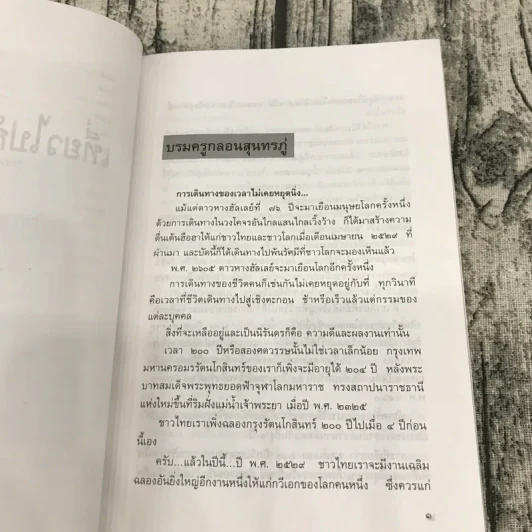 บรมครูกลอนสุนทรภู่
การเดินทางของเวลาไม่เคยหยุดนิ่ง...
แม้แต่ดาวหางฮัลเลย์ที่ ๗๖ ปีจะมาเยือนมนุษยโลกครั้งหนึ่ง
ด้วยการเดินทางในวงโคจรอันไกลแสนไกลเวิ้งว้าง ก็ได้มาสร้างความ
ตื่นเต้นฮือฮาให้แก่ชาวไทยและชาวโลกเมื่อเดือนเมษายน ๒๕๒๙ ที่
ผ่านมา และบัดนี้ก็ได้เดินทางไปพ้นรัศมีที่ชาวโลกจะมองเห็นแล้ว
พ.ศ. ๒๖๐๕ ดาวหางฮัลเลย์จะมาเยือนโลกอีกครั้งหนึ่ง
การเดินทางของชีวิตคนก็เช่นกันไม่เคยหยุดอยู่กับที่ ทุกวินาที
คือเวลาที่ชีวิตเดินทางไปสู่เชิงตะกอน ช้าหรือเร็วแล้วแต่กรรมของ
แต่ละบุคคล
สิ่งที่จะเหลืออยู่และเป็นนิรันดรก็คือ ความดีและผลงานเท่านั้น
เวลา ๒๐๐ ปีหรือสองศตวรรษนั้นไม่ใช่เวลาเล็กน้อย กรุงเทพ
มหานครอมรรัตนโกสินทร์ของเราก็เพิ่งจะมีอายุได้ ๒๐๔ ปี หลังพระ
บาทสมเด็จพระพุทธยอดฟ้าจุฬาโลกมหาราช ทรงสถาปนาราชธานี
แห่งใหม่ขึ้นที่ริมฝั่งแม่น้ำเจ้าพระยา เมื่อปี พ.ศ. ๒๓๒๕
ชาวไทยเราเพิ่งฉลองกรุงรัตนโกสินทร์ ๒๐๐ ปีไปเมื่อ ๔ ปีก่อน
นี้เอง
ครับ...แล้วในปีนี้...ปี พ.ศ. ๒๕๒๙ ชาวไทยเราจะมีงานเฉลิม
ฉลองอันยิ่งใหญ่อีกงานหนึ่งให้แก่กวีเอกของโลกคนหนึ่ง ซึ่งควรแก่
๑